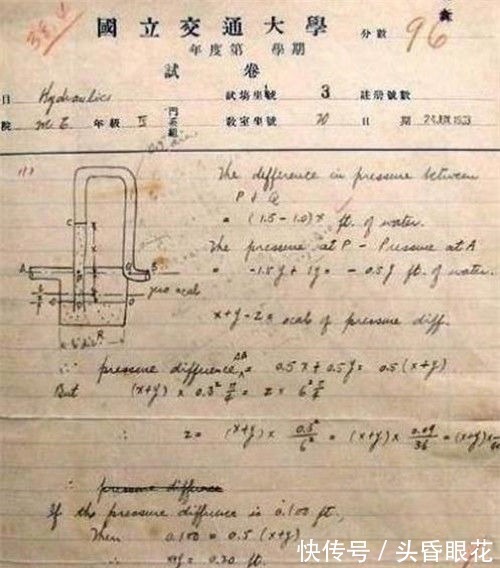 國立交通大學
分數 96
年度第 學期
試卷
目 Hydraulics 試場坐號 3 註册號數
院 M E 年級 IV 門系組 教室坐號 70 日期 24 JUN 1933
(1)
The difference in pressure between
P & Q
= (1.5-1.0)x ft. of water.
The pressure at P - Pressure at A
= -1.5y + 1y = -0.5y ft. of water.
C
A
B
zero scale
R
x+y-z = scale of pressure diff.
∴ pressure difference = 0.5x + 0.5y = 0.5(x+y)
But (x+y) × 0.3² π/4 = z = 6² π/4
∴ z = (x+y) × 0.3²/6² = (x+y) × 0.09/36 = (x+y) ×
∴ pressure difference
If the pressure difference is 0.100 ft,
Then 0.100 = 0.5 (x+y)
∴ x+y = 0.20 ft.
快传号 / 头昏眼花